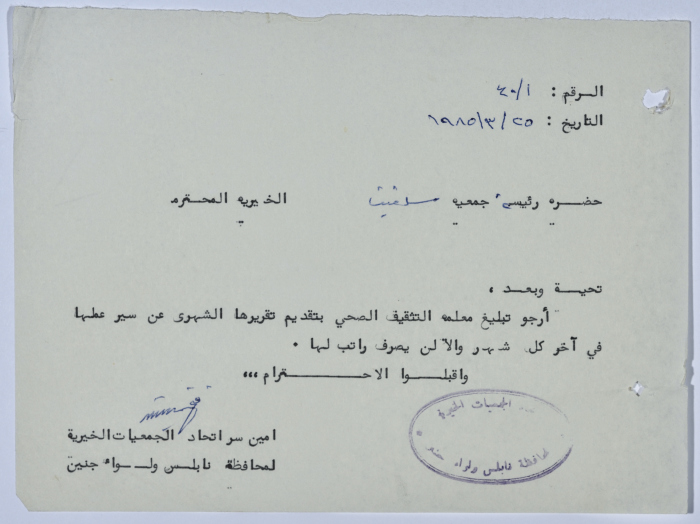 الـرقم : ٤٠/١
التاريخ : ٢٥/٣/١٩٨٥
حضـــره رئيسى جمعيه سلفيت الخيريه المحـترمه
تحيــة وبعـد ،
أرجو تبليغ معلمه التثقيف الصحي بتقديم تقريرها الشهرى عن سير عملها
في آخر كل شهـر والا لن يصرف راتب لـها ٠
واقبلـوا الاحـــترام ،،،
امين سر اتحاد الجمعيات الخيرية
لمحافظة نابلـس ولـواء جنين
الجمعيات الخيرية
لمحافظة نابلس ولواء جنين